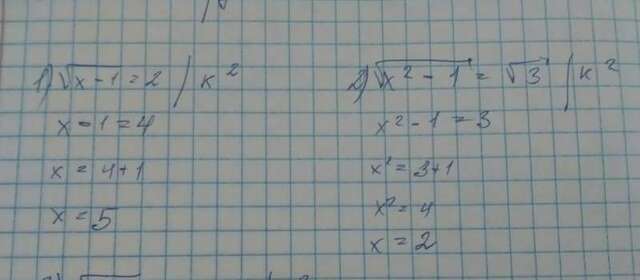 1) √x-1 = 2 / к²
x - 1 = 4
x = 4+1
x = 5
2) √x² - 1 = √3 / к²
x² - 1 = 3
x² = 3+1
x² = 4
x = 2